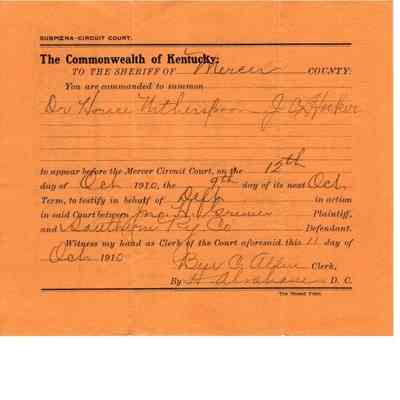 SUBPŒNA-CIRCUIT COURT.
The Commonwealth of Kentucky:
TO THE SHERIFF OF Mercer COUNTY:
You are commanded to summon
Dr Horace Witherspoon J C Hooker
to appear before the Mercer Circuit Court, on the 12th
day of Oct 1910, the 9th day of its next Oct
Term, to testify in behalf of Deft in action
in said Court between Plaintiff,
and Southern Ry Co Defendant.
Witness my hand as Clerk of the Court aforesaid, this 11 day of
Oct 1910
Ben C Allin Clerk,
By H D. C.